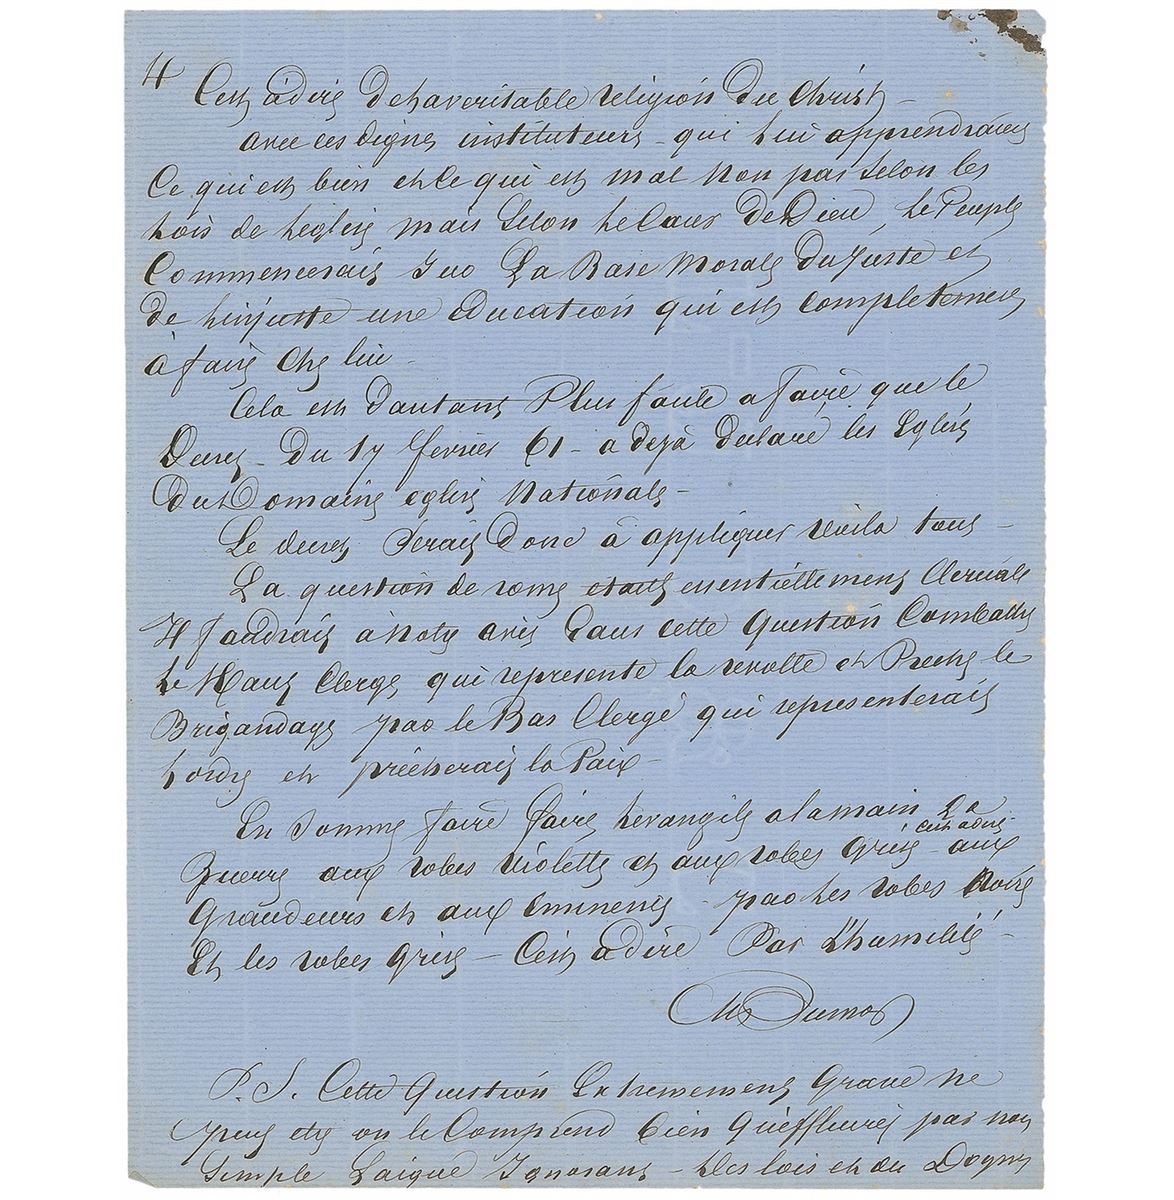 4
C'est à dire de la veritable religion du Christ –
avec ces dignes instituteurs – qui lui apprendraient
Ce qui est bien et ce qui est mal non pas selon les
lois de l'eglise mais selon le Cœur de Dieu le Peuple
Commencerait sur La Base Morale du juste et
de l'injuste une education qui est completement
à faire chez lui –
Cela est d'autant Plus facile a faire que le
Decret – du 17 fevrier 61 – a dejà declaré les Eglises
du Domaine eglise Nationale –
Le decret serait Donc à appliquer voila tout –
La question de rome etant essentiellement Clericale
Il faudrait à notre avis dans cette question Combattre
le Haut Clergé, qui represente la revolte et Preche le
Brigandage par le Bas Clergé qui representerait
l'ordre et précherait la Paix –
En somme faire faire l'evangile a la main La
Guerre aux robes violettes et aux robes grises – c'est à dire – aux
Grandeurs et aux Eminences – par les robes Noires
Et les robes grises – C'est a dire Par L'humilité –
Alex Dumas
P. S. Cette Question Extremement Grave ne
peut etre on le Comprend bien qu'effleurée par nous
Simple Laique Ignorant – des lois et du Dogme